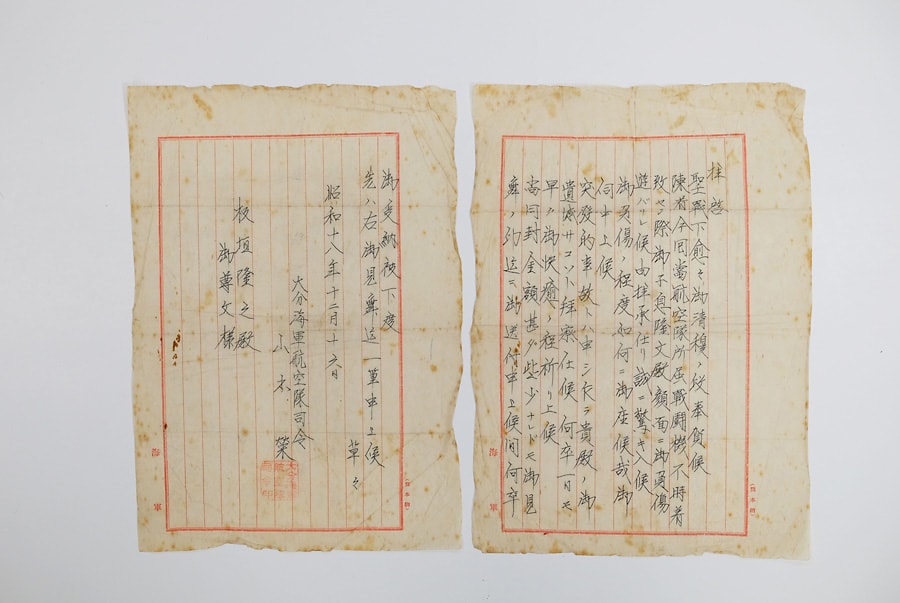 拝啓
聖戦下愈々御清穆ノ段奉賀候
陳者今回当航空隊所属戦闘機不時着
致セシ際御不負隆文殿顔面ニ御負傷
遊バサレ候由拝承仕リ誠ニ驚キ入候
御負傷ノ程度如何ニ御座候哉御
伺申上候
突発的事故トハ申シ乍ラ貴殿ノ御
遺憾サコソト拝察仕候 何卒一日モ
早ク御快癒ノ程祈リ上候
尚同封金額甚ダ些少ナレドモ御見
舞ノ印迄ニ御送付申上候間何卒
御受納被下度
先ハ右御見舞迄一筆申上候
草々
昭和十八年十二月十六日
大分海軍航空隊司令
山本 栄
板垣隆之殿
御尊父様
海軍
海軍